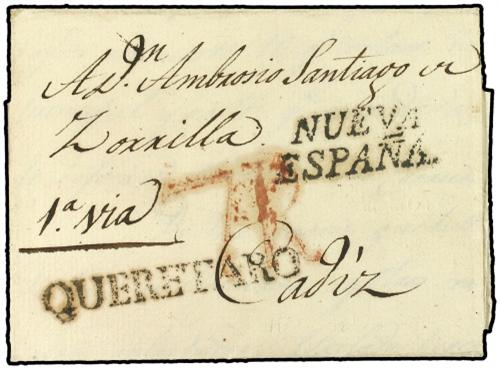 A Dn. Ambrosio Santiago de
Zorrilla.
NUEVA
ESPAÑA.
1a. via
7R
QUERETARO
Cadiz